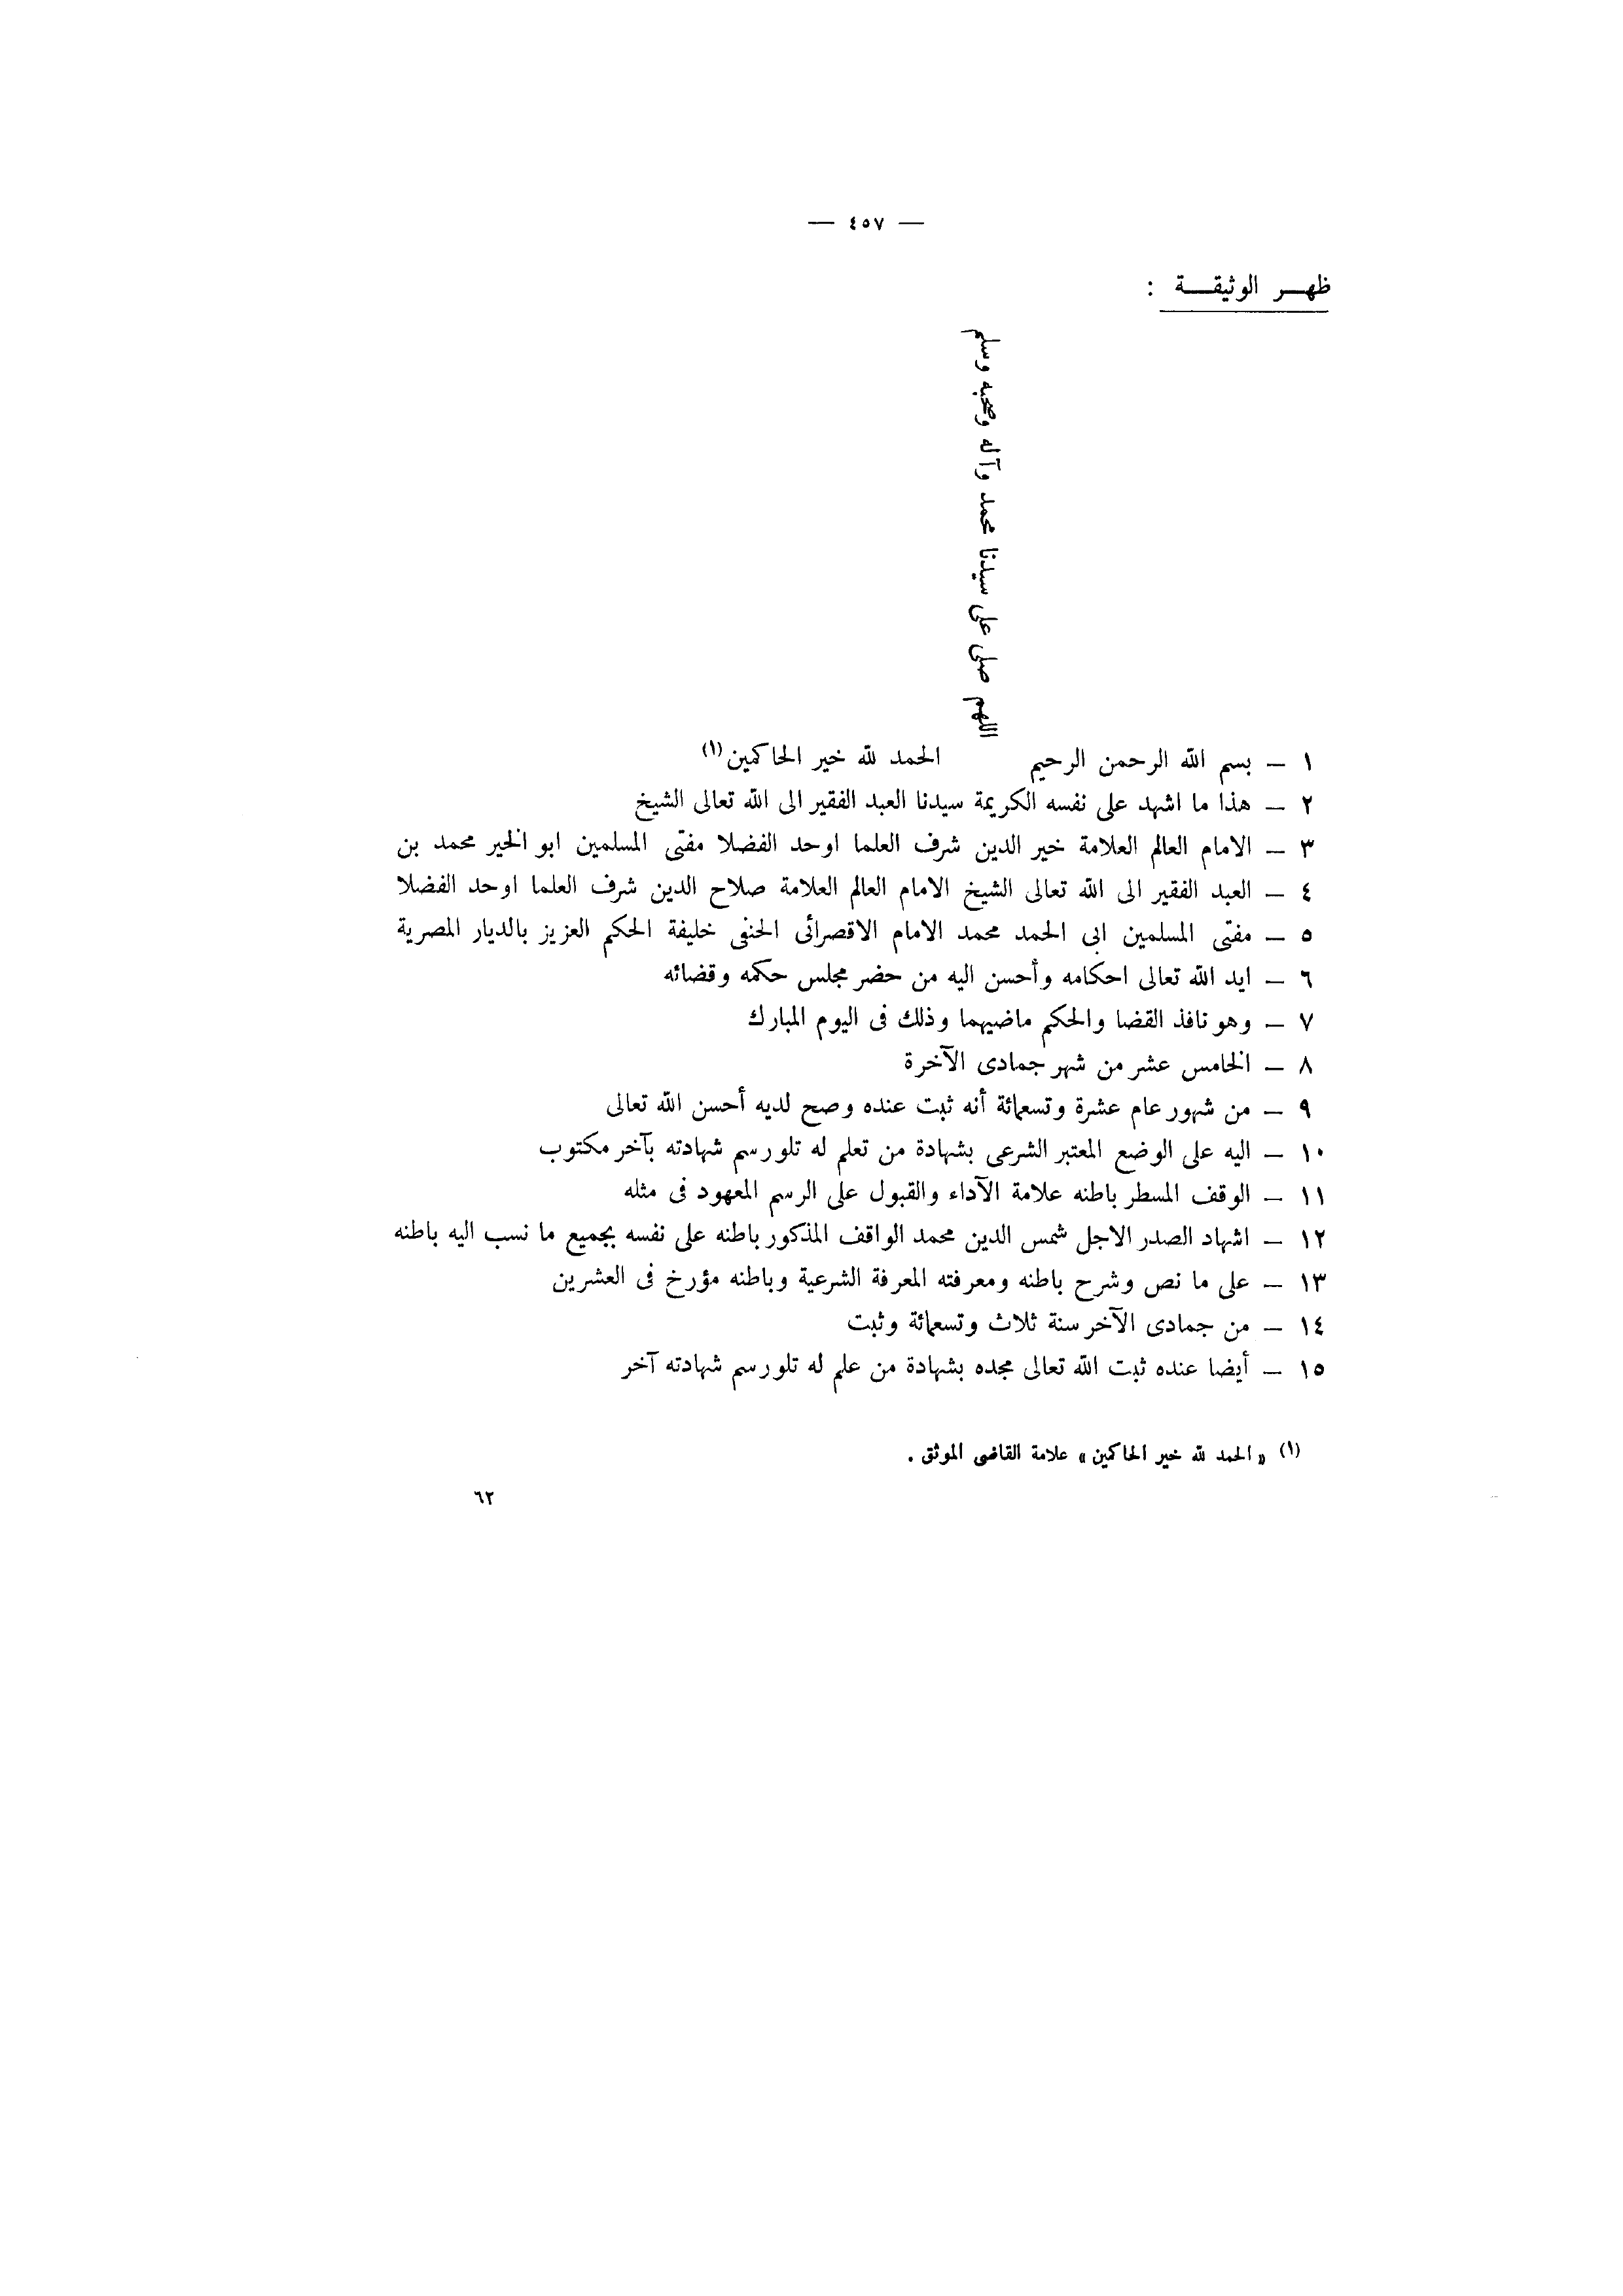 — ٤٥٧ —
ظهـــر الوثيقـــة :
اللهم صلى على سيدنا محمد وآله وصحبه وسلم
١ — بسم الله الرحمن الرحيم الحمد لله خير الحاكمين (١)
٢ — هذا ما اشهد على نفسه الكريمة سيدنا العبد الفقير الى الله تعالى الشيخ
٣ — الامام العالم العلامة خير الدين شرف العلما اوحد الفضلا مفتى المسلمين ابو الخير محمد بن
٤ — العبد الفقير الى الله تعالى الشيخ الامام العالم العلامة صلاح الدين شرف العلما اوحد الفضلا
٥ — مفتى المسلمين ابى الحمد محمد الامام الاقصرائى الحنفى خليفة الحكم العزيز بالديار المصرية
٦ — ايد الله تعالى احكامه وأحسن اليه من حضر مجلس حكمه وقضائه
٧ — وهو نافذ القضا والحكم ماضيهما وذلك فى اليوم المبارك
٨ — الخامس عشر من شهر جمادى الآخرة
٩ — من شهور عام عشرة وتسعمائة أنه ثبت عنده وصح لديه أحسن الله تعالى
١٠ — اليه على الوضع المعتبر الشرعى بشهادة من تعلم له تلو رسم شهادته بآخر مكتوب
١١ — الوقف المسطر باطنه علامة الآداء والقبول على الرسم المعهود فى مثله
١٢ — اشهاد الصدر الاجل شمس الدين محمد الواقف المذكور باطنه على نفسه بجميع ما نسب اليه باطنه
١٣ — على ما نص وشرح باطنه ومعرفته المعرفة الشرعية وباطنه مؤرخ فى العشرين
١٤ — من جمادى الآخر سنة ثلاث وتسعمائة وثبت
١٥ — أيضا عنده ثبت الله تعالى مجده بشهادة من علم له تلو رسم شهادته آخر
(١) « الحمد لله خير الحاكمين » علامة القاضى الموثق .
٦٢